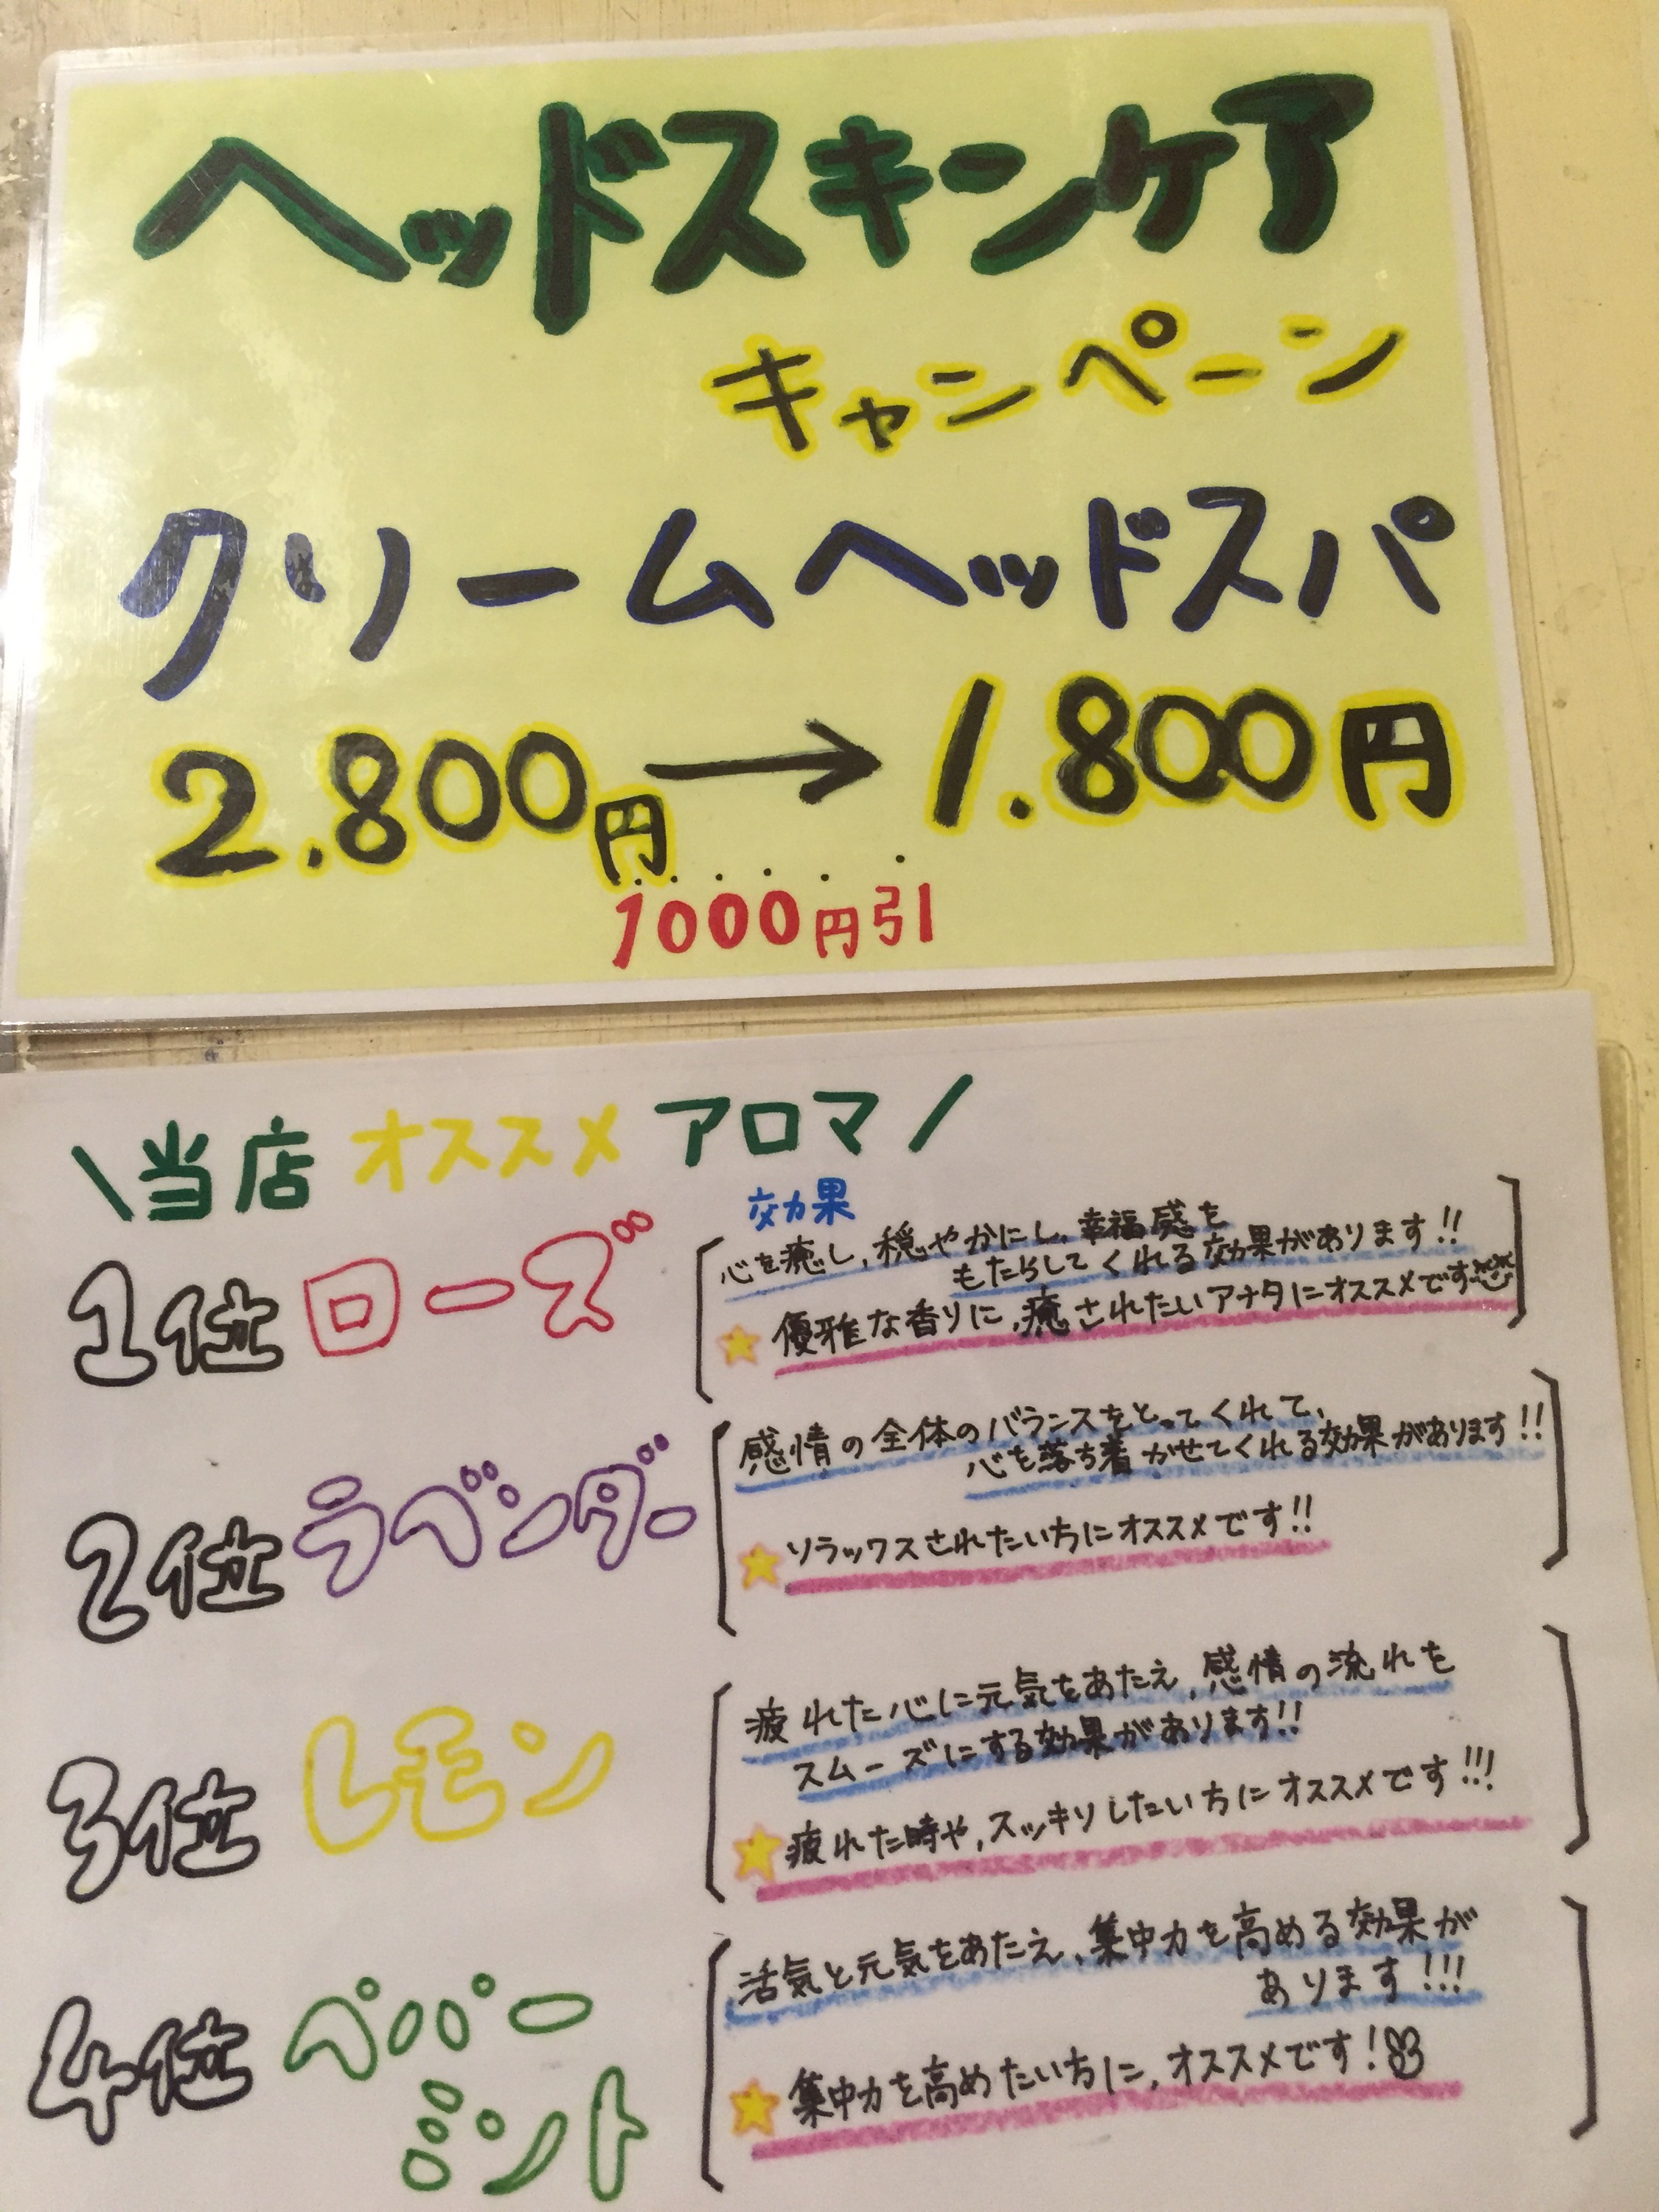 ヘッドスキンケア
キャンペーン
クリームヘッドスパ
2.800円→1.800円
1000円引
\当店オススメアロマ/
効果
1位 ローズ
心を癒し、穏やかにし、幸福感を
もたらしてくれる効果があります!!
★優雅な香りに、癒されたいアナタにオススメです
2位 ラベンダー
感情の全体のバランスをとってくれて、
心を落ち着かせてくれる効果があります!!
★リラックスされたい方にオススメです!!
3位 レモン
疲れた心に元気をあたえ、感情の流れを
スムーズにする効果があります!!
★疲れた時や、スッキリしたい方にオススメです!!!
4位 ペパー
ミント
活気と元気をあたえ、集中力を高める効果が
あります!!!
★集中力を高めたい方に、オススメです!